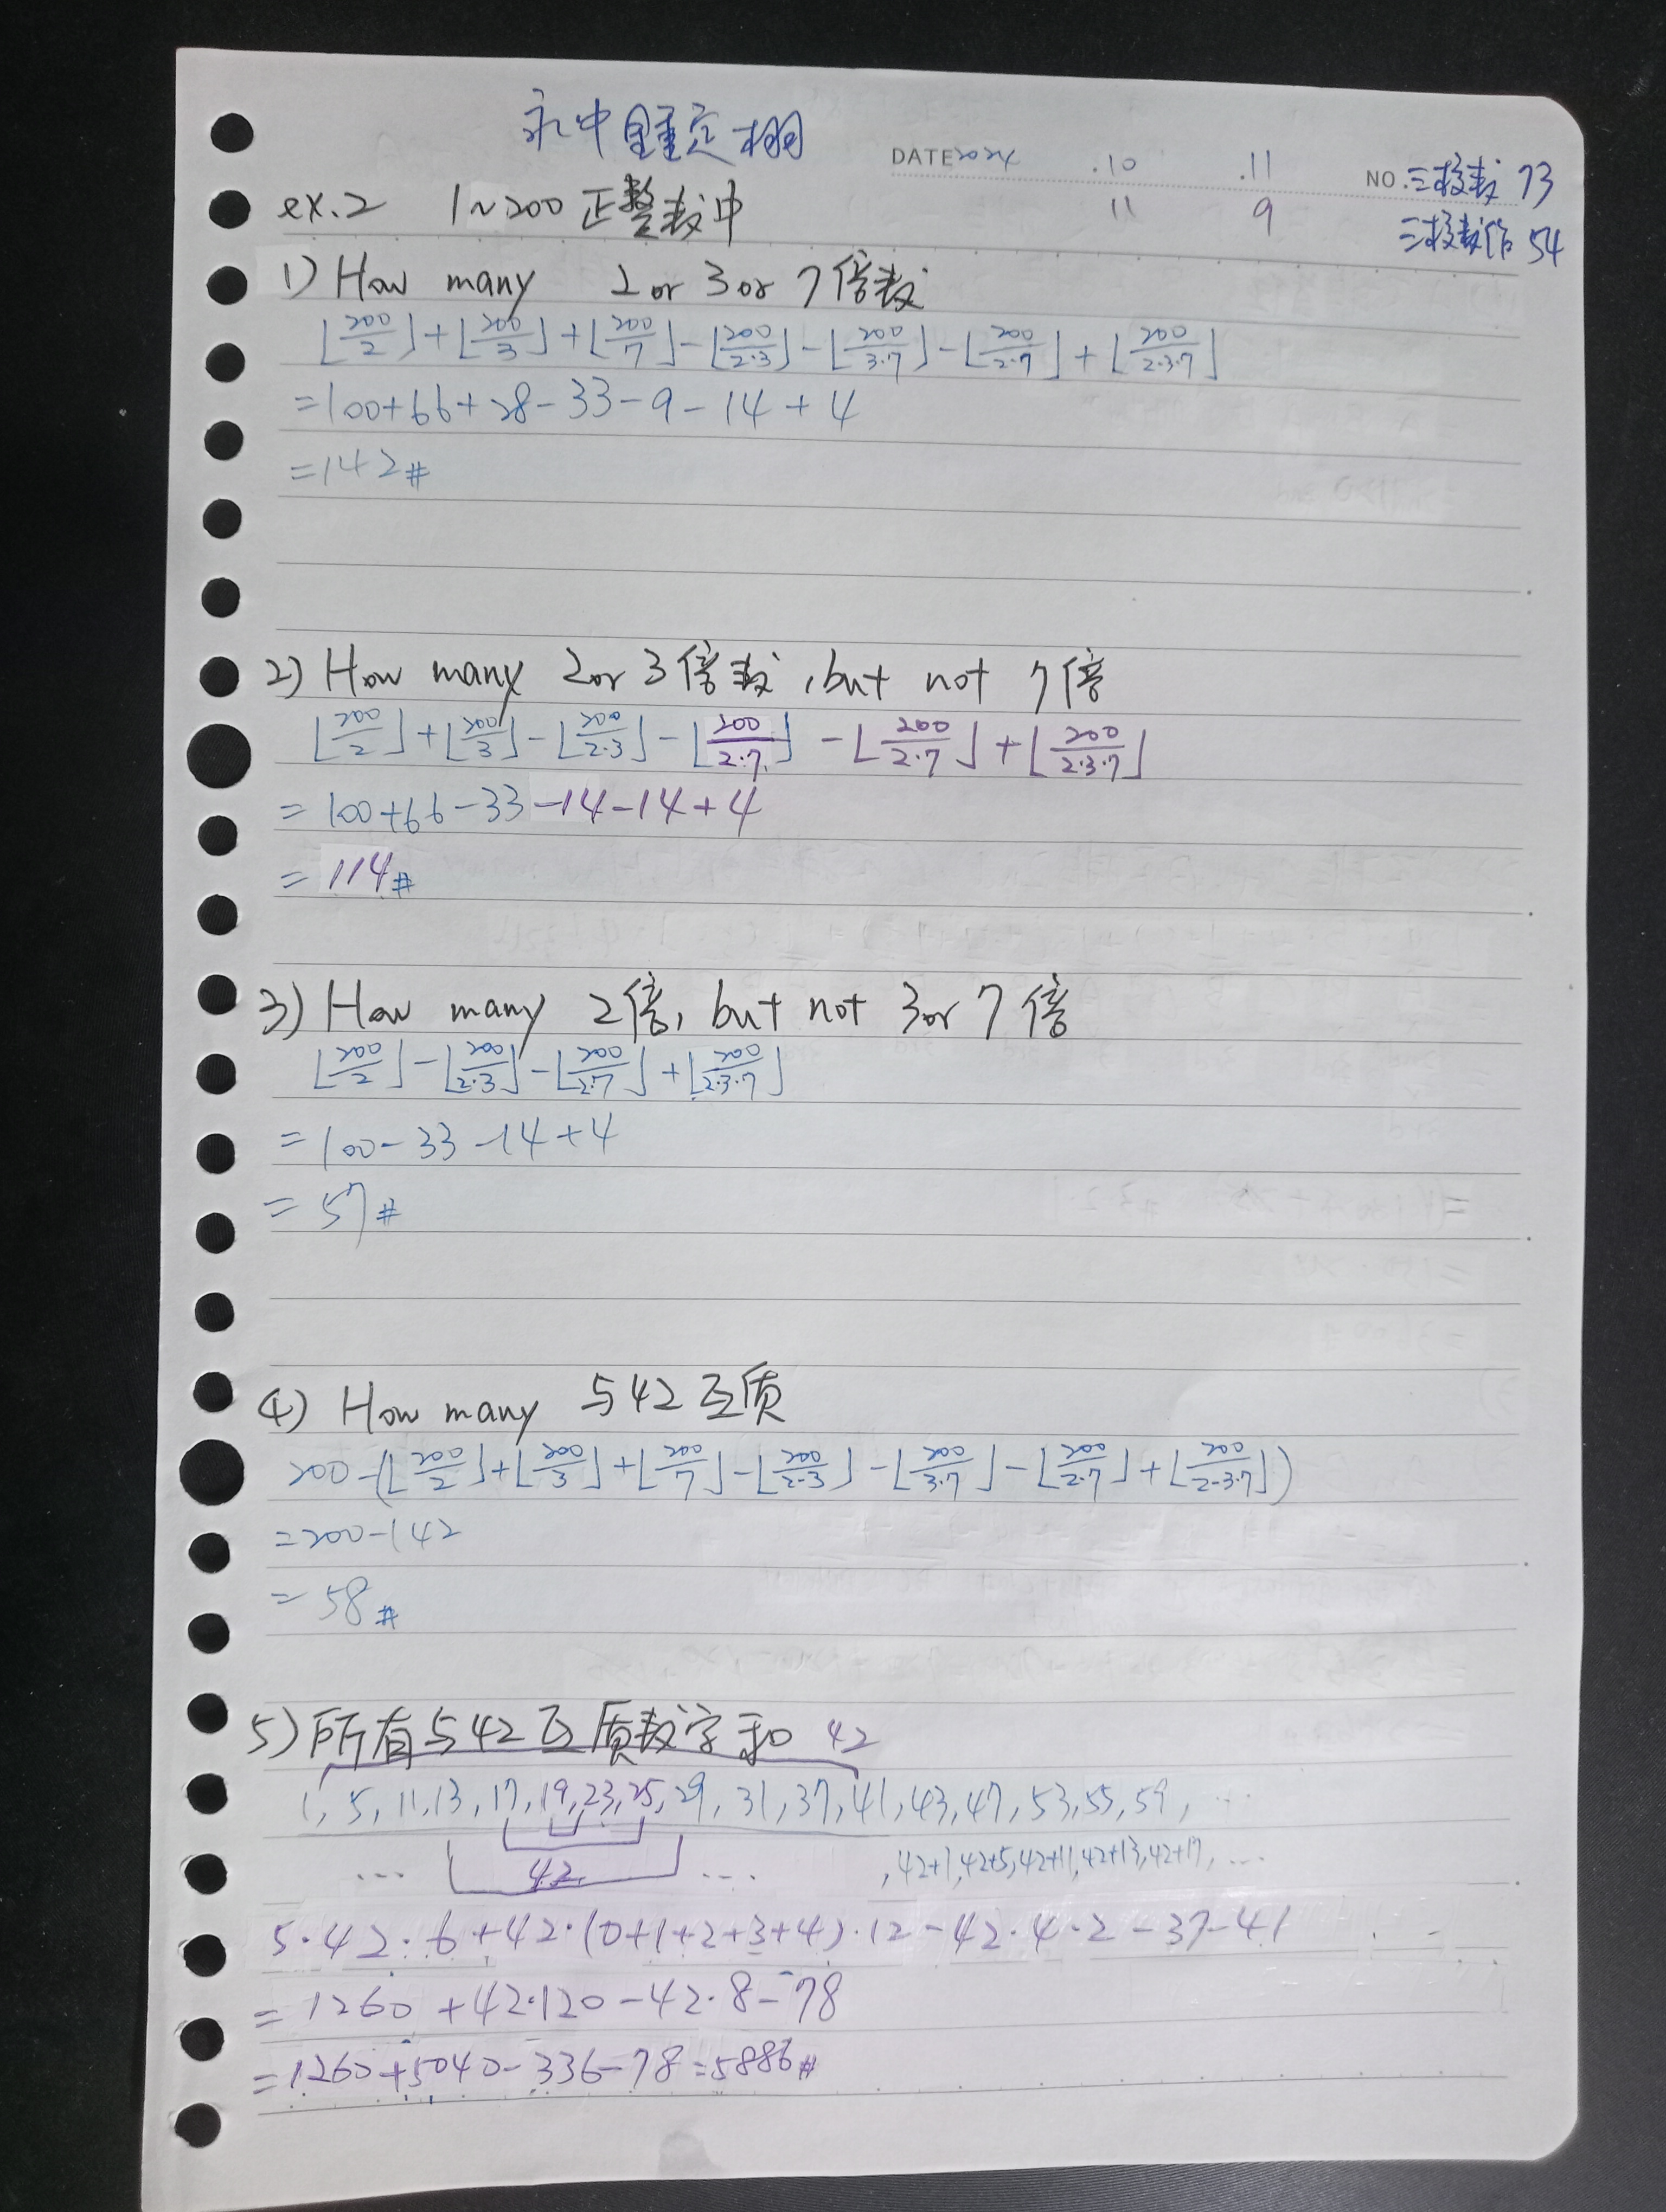 永中 鍾定栩
DATE 2024 .10 .11 NO. 三移数 73
11 9 三移数作 54
ex.2 1~200 正整数中
1) How many 2 or 3 or 7 倍数
⌊200/2⌋+⌊200/3⌋+⌊200/7⌋-⌊200/2·3⌋-⌊200/3·7⌋-⌊200/2·7⌋+⌊200/2·3·7⌋
=100+66+28-33-9-14+4
=142#
2) How many 2 or 3 倍数, but not 7 倍
⌊200/2⌋+⌊200/3⌋-⌊200/2·3⌋-⌊200/2·7⌋-⌊200/2·7⌋+⌊200/2·3·7⌋
=100+66-33-14-14+4
=114#
3) How many 2倍, but not 3 or 7 倍
⌊200/2⌋-⌊200/2·3⌋-⌊200/2·7⌋+⌊200/2·3·7⌋
=100-33-14+4
=57#
4) How many 与42互质
200-(⌊200/2⌋+⌊200/3⌋+⌊200/7⌋-⌊200/2·3⌋-⌊200/3·7⌋-⌊200/2·7⌋+⌊200/2·3·7⌋)
=200-142
=58#
5) 所有与42互质数字和 42
1, 5, 11, 13, 17, 19, 23, 25, 29, 31, 37, 41, 43, 47, 53, 55, 59, ...
... 42 ... , 42+1, 42+5, 42+11, 42+13, 42+17, ...
5·42·6+42·(0+1+2+3+4)·12-42·4·2-37-41
=1260+42·120-42·8-78
=1260+5040-336-78=5886#